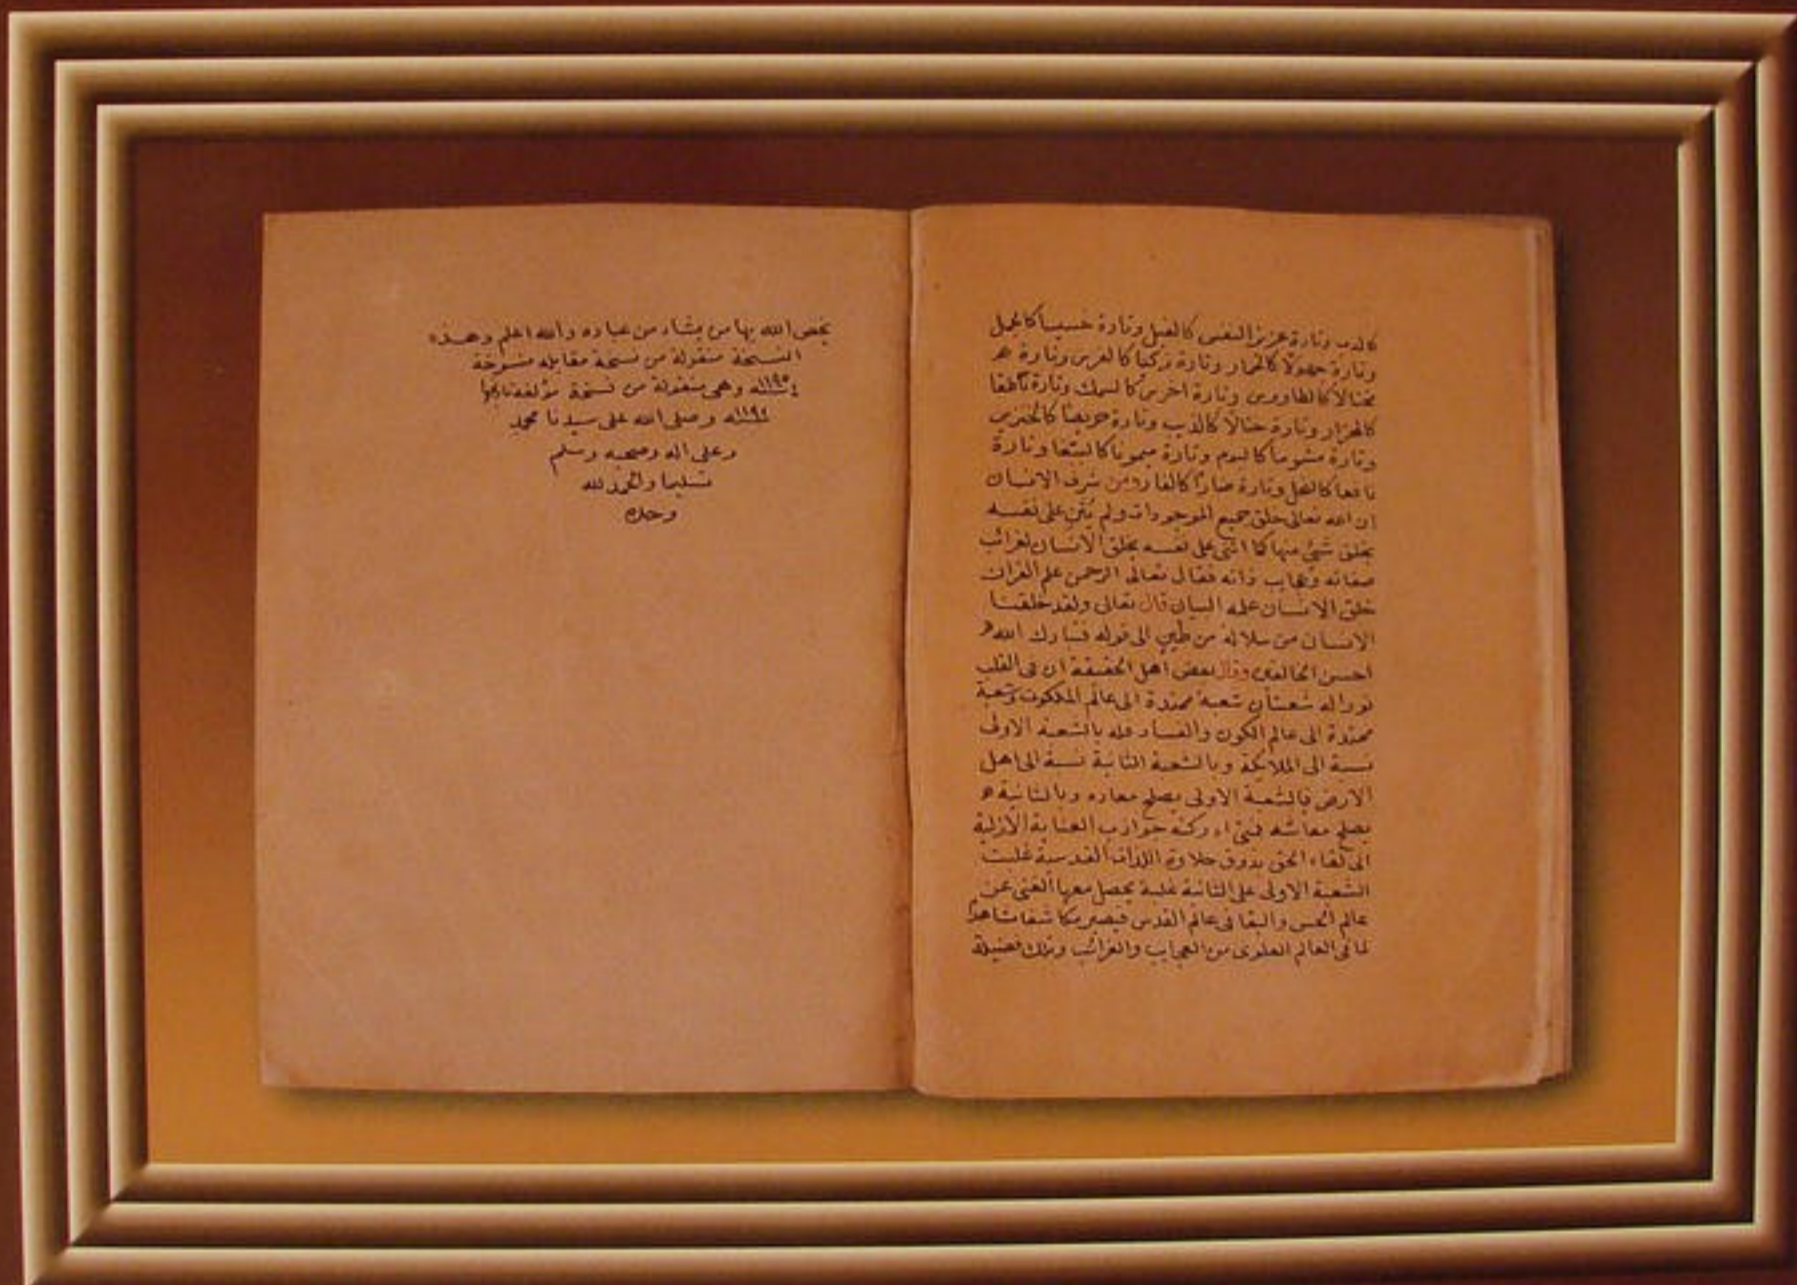 كالدب وتارة عزيز النفس كالفيل وتارة خسيسا كالجمل
وتارة جهولا كالحمار وتارة زكيا كالفرس وتارة
مختالا كالطاووس وتارة اخرس كالسمك وتارة ناطقا
كالهزار وتارة ختالا كالذيب وتارة حريصا كالخنزير
وتارة مشوما كالبوم وتارة ميمونا كالببغا وتارة
نافعا كالنحل وتارة ضارا كالفار ومن شرف الانسان
ان الله تعالى خلق جميع الموجودات ولم يثن على نفسه
بخلق شئ منها كما اثنى على نفسه بخلق الانسان لغرائب
صفاته وعجايب ذاته فقال تعالى الرحمن علم القران
خلق الانسان علمه البيان قال تعالى ولقد خلقنا
الانسان من سلالة من طين الى قوله فتبارك الله
احسن الخالقين وقال بعض اهل الحقيقة ان في القلب
نورا له شعبتان شعبة ممتدة الى عالم الملكوت وشعبة
ممتدة الى عالم الكون والفساد فله بالشعبة الاولى
نسبة الى الملائكة وبالشعبة الثانية نسبة الى اهل
الارض فبالشعبة الاولى يصلح معاده وبالثانية
يصلح معاشه فمتى ادركته جواذب العناية الازلية
الى لقاء الحق بذوق حلاوة اللذات القدسية غلبت
الشعبة الاولى على الثانية غلبة يحصل معها الغنى عن
عالم الحس والبقا في عالم القدس فيصير مكاشفا مشاهدا
لما في العالم العلوى من العجايب والغرائب وتلك فضيلة
يخص الله بها من يشاء من عباده والله اعلم وهذه
النسخة منقولة من نسخة مقابله منسوخة
وهى منقولة من نسخة مؤلفة
وصلى الله على سيدنا محمد
وعلى اله وصحبه وسلم
تسليما والحمد لله
وحده